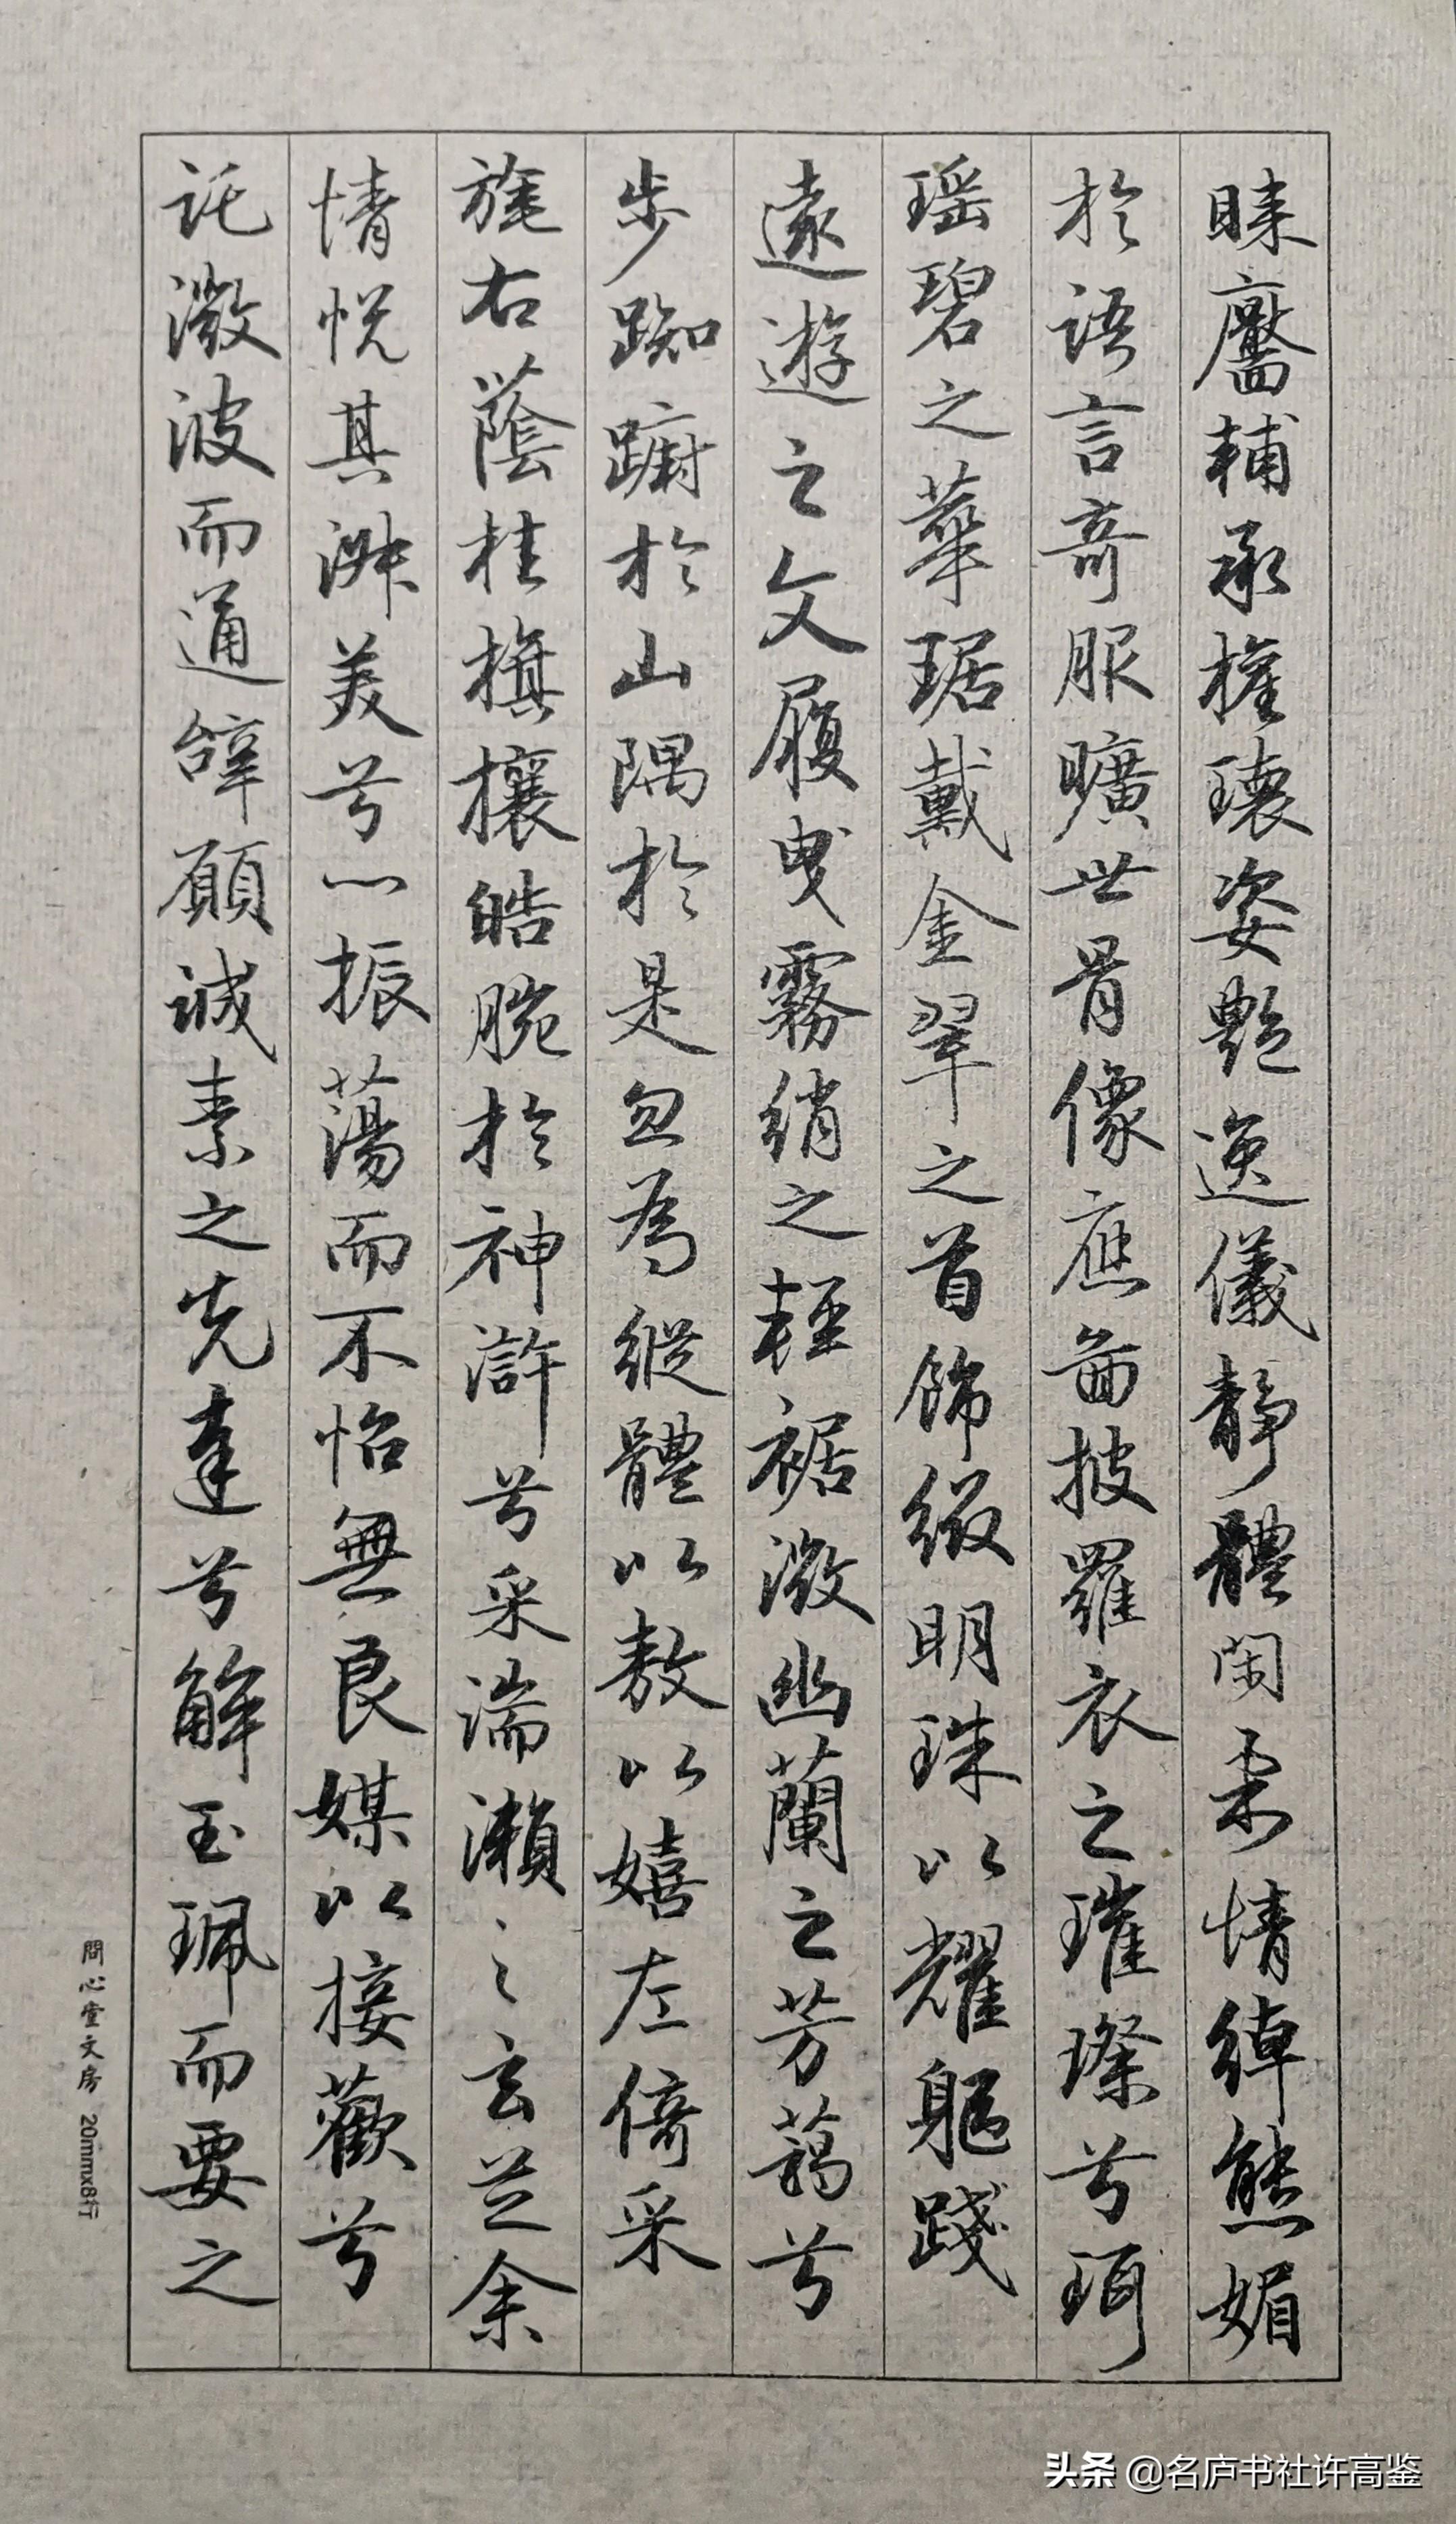 睞靨輔承權瓌姿艷逸儀靜體閑柔情綽態媚
於語言奇服曠世骨像應圖披羅衣之璀璨兮珥
瑶碧之華琚戴金翠之首飾綴明珠以耀軀踐
遠遊之文履曳霧綃之輕裾微幽蘭之芳藹兮
步踟躕於山隅於是忽為縱體以敖以嬉左倚采
旄右蔭桂旗攘皓腕於神滸兮采湍瀨之玄芝余
情悅其淑美兮心振蕩而不怡無良媒以接歡兮
託微波而通辭願誠素之先達兮解玉珮而要之
問心堂文房 20mmx8行
头条 @名庐书社许高鉴